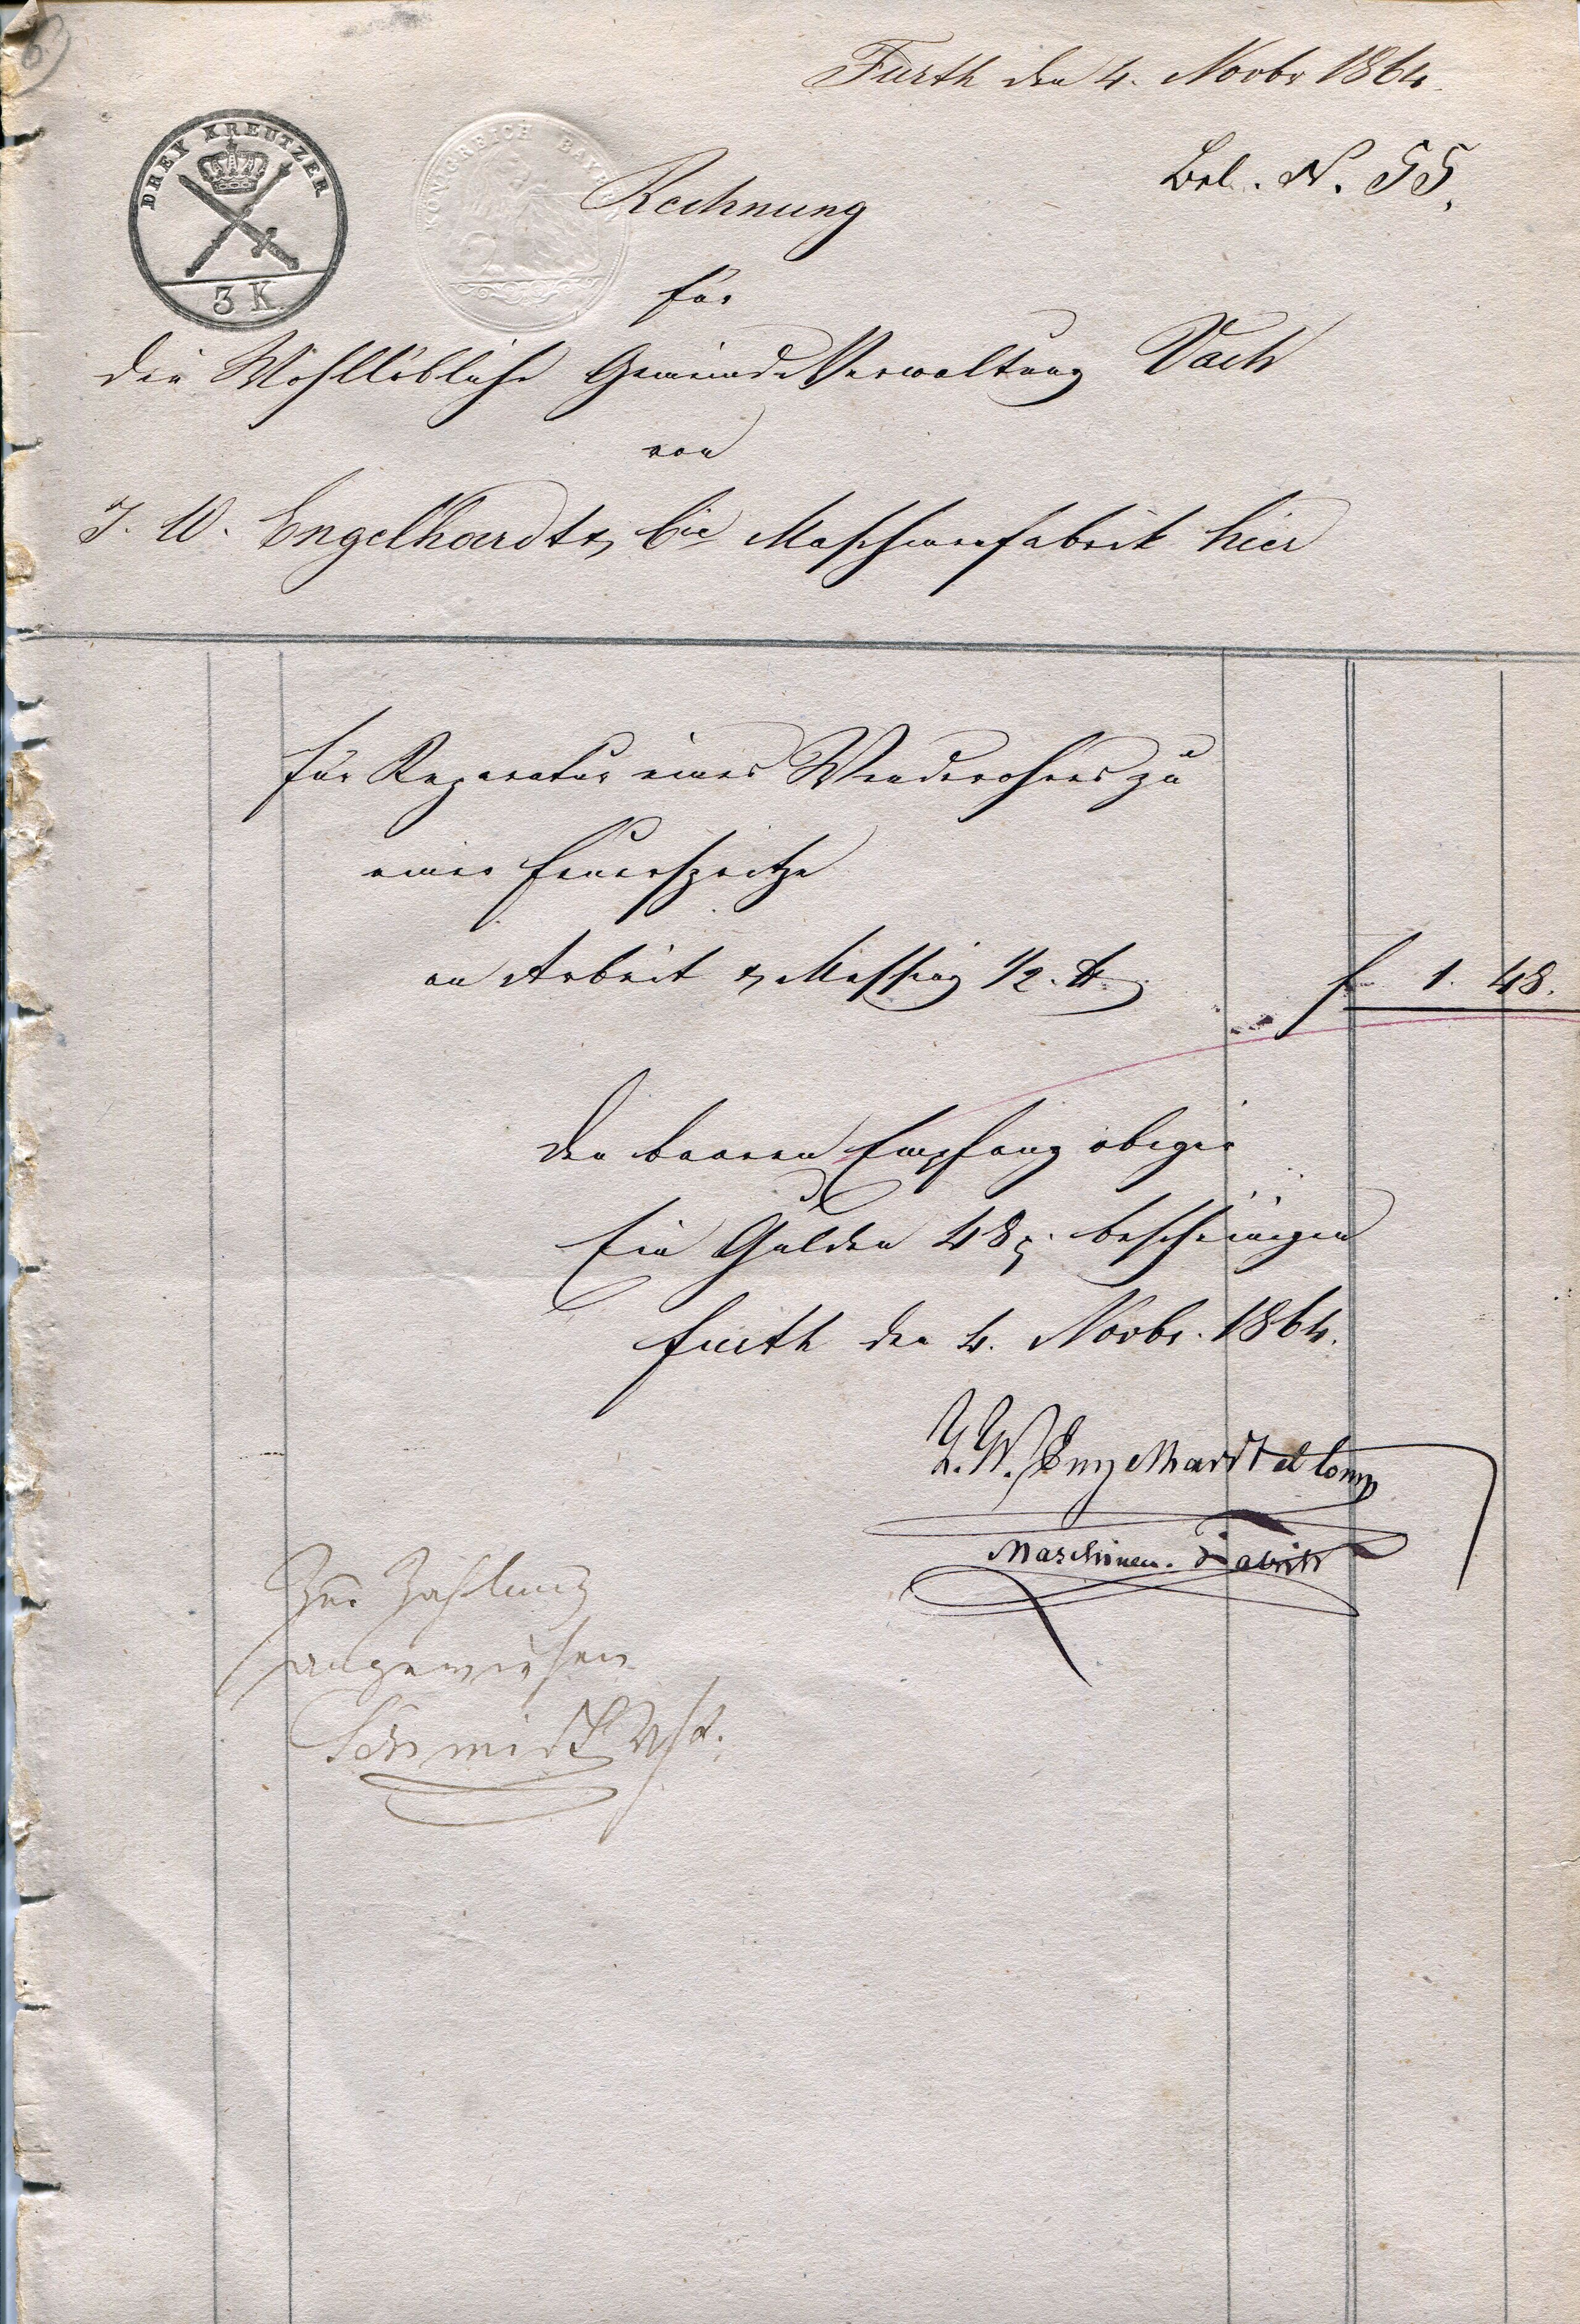 Fürth den 4. Novbr 1864.
Bel. N. 55.
DREY KREUTZER
3 K.
KÖNIGREICH BAYERN
Rechnung
für
die Wohllöbliche Gemeinde Verwaltung Vach
von
J. W. Engelhardt & Cie Maschinenfabrik hier
für Reparatur eines Wenderohres zu
einer Feuerspritze
an Arbeit & Messing 1/2 ℔
f 1. 48.
den baaren Empfang obiger
Ein Gulden 48 x. bescheinigen
Fürth den 4. Novbr. 1864.
J. W. Engelhardt et Comp
Maschinen-Fabrik
Zur Zahlung
angewiesen
Schmidt Vst.